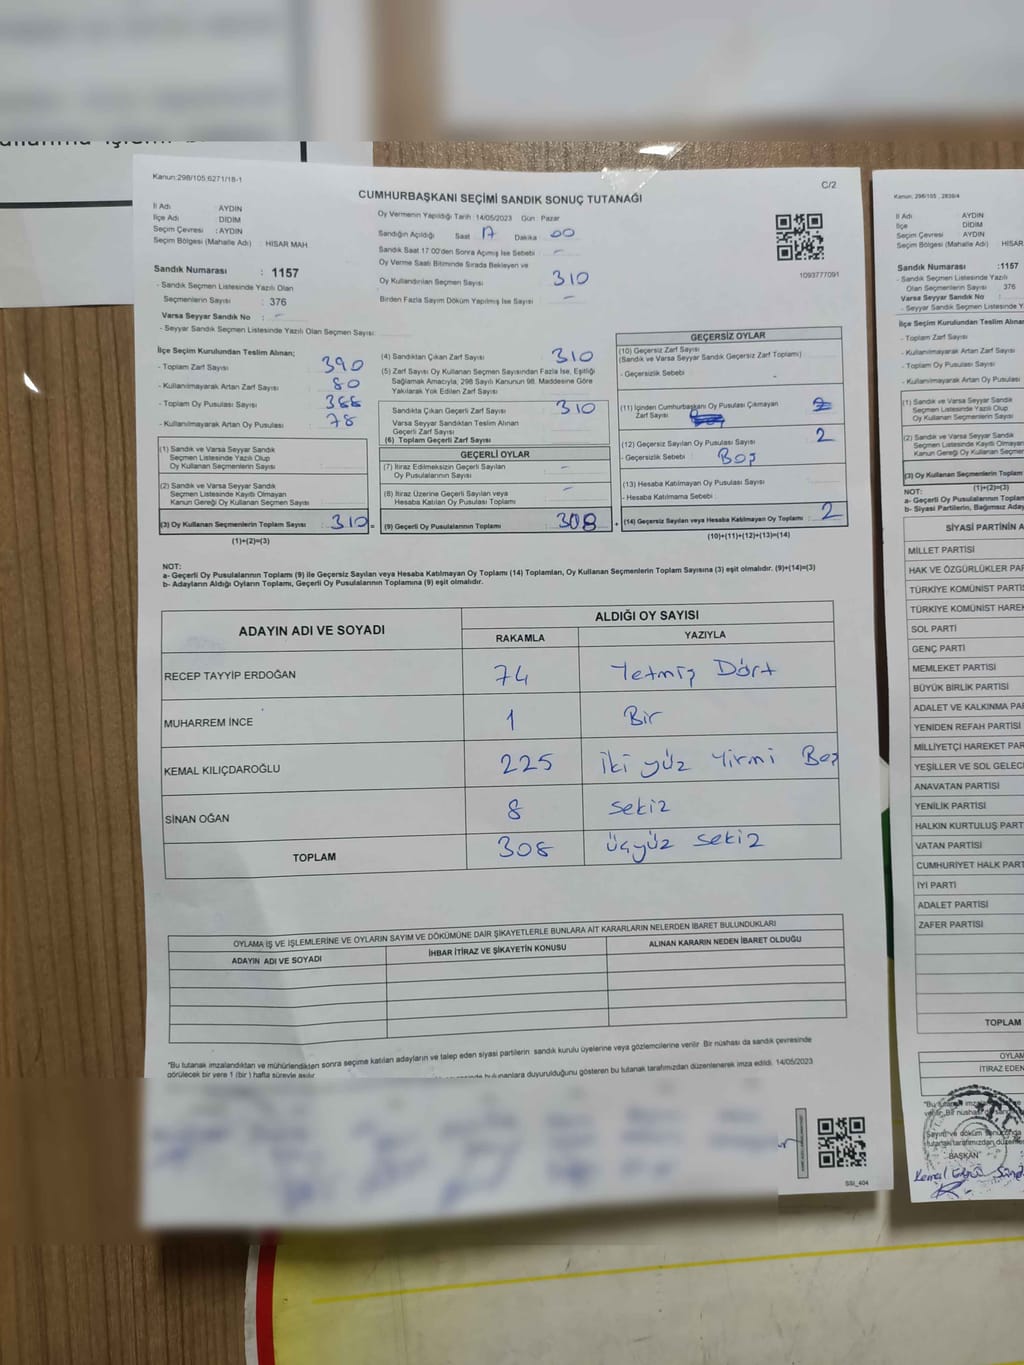 Kanun:298/105,6271/18-1
C/2
CUMHURBAŞKANI SEÇİMİ SANDIK SONUÇ TUTANAĞI
İl Adı : AYDIN
İlçe Adı : DİDİM
Seçim Çevresi : AYDIN
Seçim Bölgesi (Mahalle Adı) : HISAR MAH
Sandık Numarası : 1157
- Sandık Seçmen Listesinde Yazılı Olan
Seçmenlerin Sayısı : 376
Varsa Seyyar Sandık No : -
- Seyyar Sandık Seçmen Listesinde Yazılı Olan Seçmen Sayısı:
Oy Vermenin Yapıldığı Tarih : 14/05/2023 Gün : Pazar
Sandığın Açıldığı Saat 17 Dakika 00
Sandık Saat 17:00'den Sonra Açımış İse Sebebi -
Oy Verme Saati Bitiminde Sırada Bekleyen ve
Oy Kullandırılan Seçmen Sayısı 310
Birden Fazla Sayım Döküm Yapılmış İse Sayısı -
1093777091
İlçe Seçim Kurulundan Teslim Alınan;
- Toplam Zarf Sayısı : 390
- Kullanılmayarak Artan Zarf Sayısı : 80
- Toplam Oy Pusulası Sayısı : 388
- Kullanılmayarak Artan Oy Pusulası : 78
(1) Sandık ve Varsa Seyyar Sandık
Seçmen Listesinde Yazılı Olup
Oy Kullanan Seçmenlerin Sayısı
(2) Sandık ve Varsa Seyyar Sandık
Seçmen Listesinde Kayıtlı Olmayan
Kanun Gereği Oy Kullanan Seçmen Sayısı :
(3) Oy Kullanan Seçmenlerin Toplam Sayısı : 310 =
(1)+(2)=(3)
(4) Sandıktan Çıkan Zarf Sayısı 310
(5) Zarf Sayısı Oy Kullanan Seçmen Sayısından Fazla İse, Eşitliği
Sağlamak Amacıyla, 298 Sayılı Kanunun 98. Maddesine Göre
Yakılarak Yok Edilen Zarf Sayısı
Sandıkta Çıkan Geçerli Zarf Sayısı 310
Varsa Seyyar Sandıktan Teslim Alınan
Geçerli Zarf Sayısı
(6) Toplam Geçerli Zarf Sayısı
GEÇERLİ OYLAR
(7) İtiraz Edilmeksizin Geçerli Sayılan
Oy Pusulalarının Sayısı -
(8) İtiraz Üzerine Geçerli Sayılan veya
Hesaba Katılan Oy Pusulası Toplamı -
(9) Geçerli Oy Pusulalarının Toplamı 308 +
GEÇERSİZ OYLAR
(10) Geçersiz Zarf Sayısı
(Sandık ve Varsa Seyyar Sandık Geçersiz Zarf Toplamı)
- Geçersizlik Sebebi :
(11) İçinden Cumhurbaşkanı Oy Pusulası Çıkmayan
Zarf Sayısı
(12) Geçersiz Sayılan Oy Pusulası Sayısı : 2
- Geçersizlik Sebebi : Boş
(13) Hesaba Katılmayan Oy Pusulası Sayısı
- Hesaba Katılmama Sebebi :
(14) Geçersiz Sayılan veya Hesaba Katılmayan Oy Toplamı : 2
(10)+(11)+(12)+(13)=(14)
NOT:
a- Geçerli Oy Pusulalarının Toplamı (9) ile Geçersiz Sayılan veya Hesaba Katılmayan Oy Toplamı (14) Toplamları, Oy Kullanan Seçmenlerin Toplam Sayısına (3) eşit olmalıdır. (9)+(14)=(3)
b- Adayların Aldığı Oyların Toplamı, Geçerli Oy Pusulalarının Toplamına (9) eşit olmalıdır.
ADAYIN ADI VE SOYADI
ALDIĞI OY SAYISI
RAKAMLA YAZIYLA
RECEP TAYYİP ERDOĞAN 74 Yetmiş Dört
MUHARREM İNCE 1 Bir
KEMAL KILIÇDAROĞLU 225 iki yüz Yirmi Beş
SİNAN OĞAN 8 sekiz
TOPLAM 308 üçyüz sekiz
OYLAMA İŞ VE İŞLEMLERİNE VE OYLARIN SAYIM VE DÖKÜMÜNE DAİR ŞİKAYETLERLE BUNLARA AİT KARARLARIN NELERDEN İBARET BULUNDUKLARI
ADAYIN ADI VE SOYADI İHBAR İTİRAZ VE ŞİKAYETİN KONUSU ALINAN KARARIN NEDEN İBARET OLDUĞU
"Bu tutanak imzalandıktan ve mühürlendikten sonra seçime katılan adayların ve talep eden siyasi partilerin sandık kurulu üyelerine veya gözlemcilerine verilir. Bir nüshası da sandık çevresinde
görülecek bir yere 1 (bir) hafta süreyle asılır.
bulunanlara duyurulduğunu gösteren bu tutanak tarafımızdan düzenlenerek imza edildi. 14/05/2023
SSI_404
Kanun: 298/105, 2839/4
İl Adı AYDIN
İlçe DİDİM
Seçim Çevresi AYDIN
Seçim Bölgesi (Mahalle Adı) : HISAR
Sandık Numarası :1157
- Sandık Seçmen Listesinde Yazılı
Olan Seçmenlerin Sayısı 376
Varsa Seyyar Sandık No :
- Seyyar Sandık Seçmen Listesinde Yazılı
İlçe Seçim Kurulundan Teslim Alınan
- Toplam Zarf Sayısı
- Kullanılmayarak Artan Zarf Sayısı
- Toplam Oy Pusulası Sayısı
- Kullanılmayarak Artan Oy Pusulası
(1) Sandık ve Varsa Seyyar Sandık
Seçmen Listesinde Yazılı Olup
Oy Kullanan Seçmenlerin Sayısı
(2) Sandık ve Varsa Seyyar Sandık
Seçmen Listesinde Kayıtlı Olmayan
Kanun Gereği Oy Kullanan Seçmen
(3) Oy Kullanan Seçmenlerin Toplam
(1)+(2)=(3)
NOT:
a- Geçerli Oy Pusulalarının Toplam
b- Siyasi Partilerin, Bağımsız Aday
SİYASİ PARTİNİN A
MİLLET PARTİSİ
HAK VE ÖZGÜRLÜKLER PAR
TÜRKİYE KOMÜNİST PARTİS
TÜRKİYE KOMÜNİST HAREK
SOL PARTİ
GENÇ PARTİ
MEMLEKET PARTİSİ
BÜYÜK BİRLİK PARTİSİ
ADALET VE KALKINMA PAR
YENİDEN REFAH PARTİSİ
MİLLİYETÇİ HAREKET PAR
YEŞİLLER VE SOL GELEC
ANAVATAN PARTİSİ
YENİLİK PARTİSİ
HALKIN KURTULUŞ PART
VATAN PARTİSİ
CUMHURİYET HALK PART
İYİ PARTİ
ADALET PARTİSİ
ZAFER PARTİSİ
TOPLAM
OYLAM
İTİRAZ EDEN
BAŞKAN